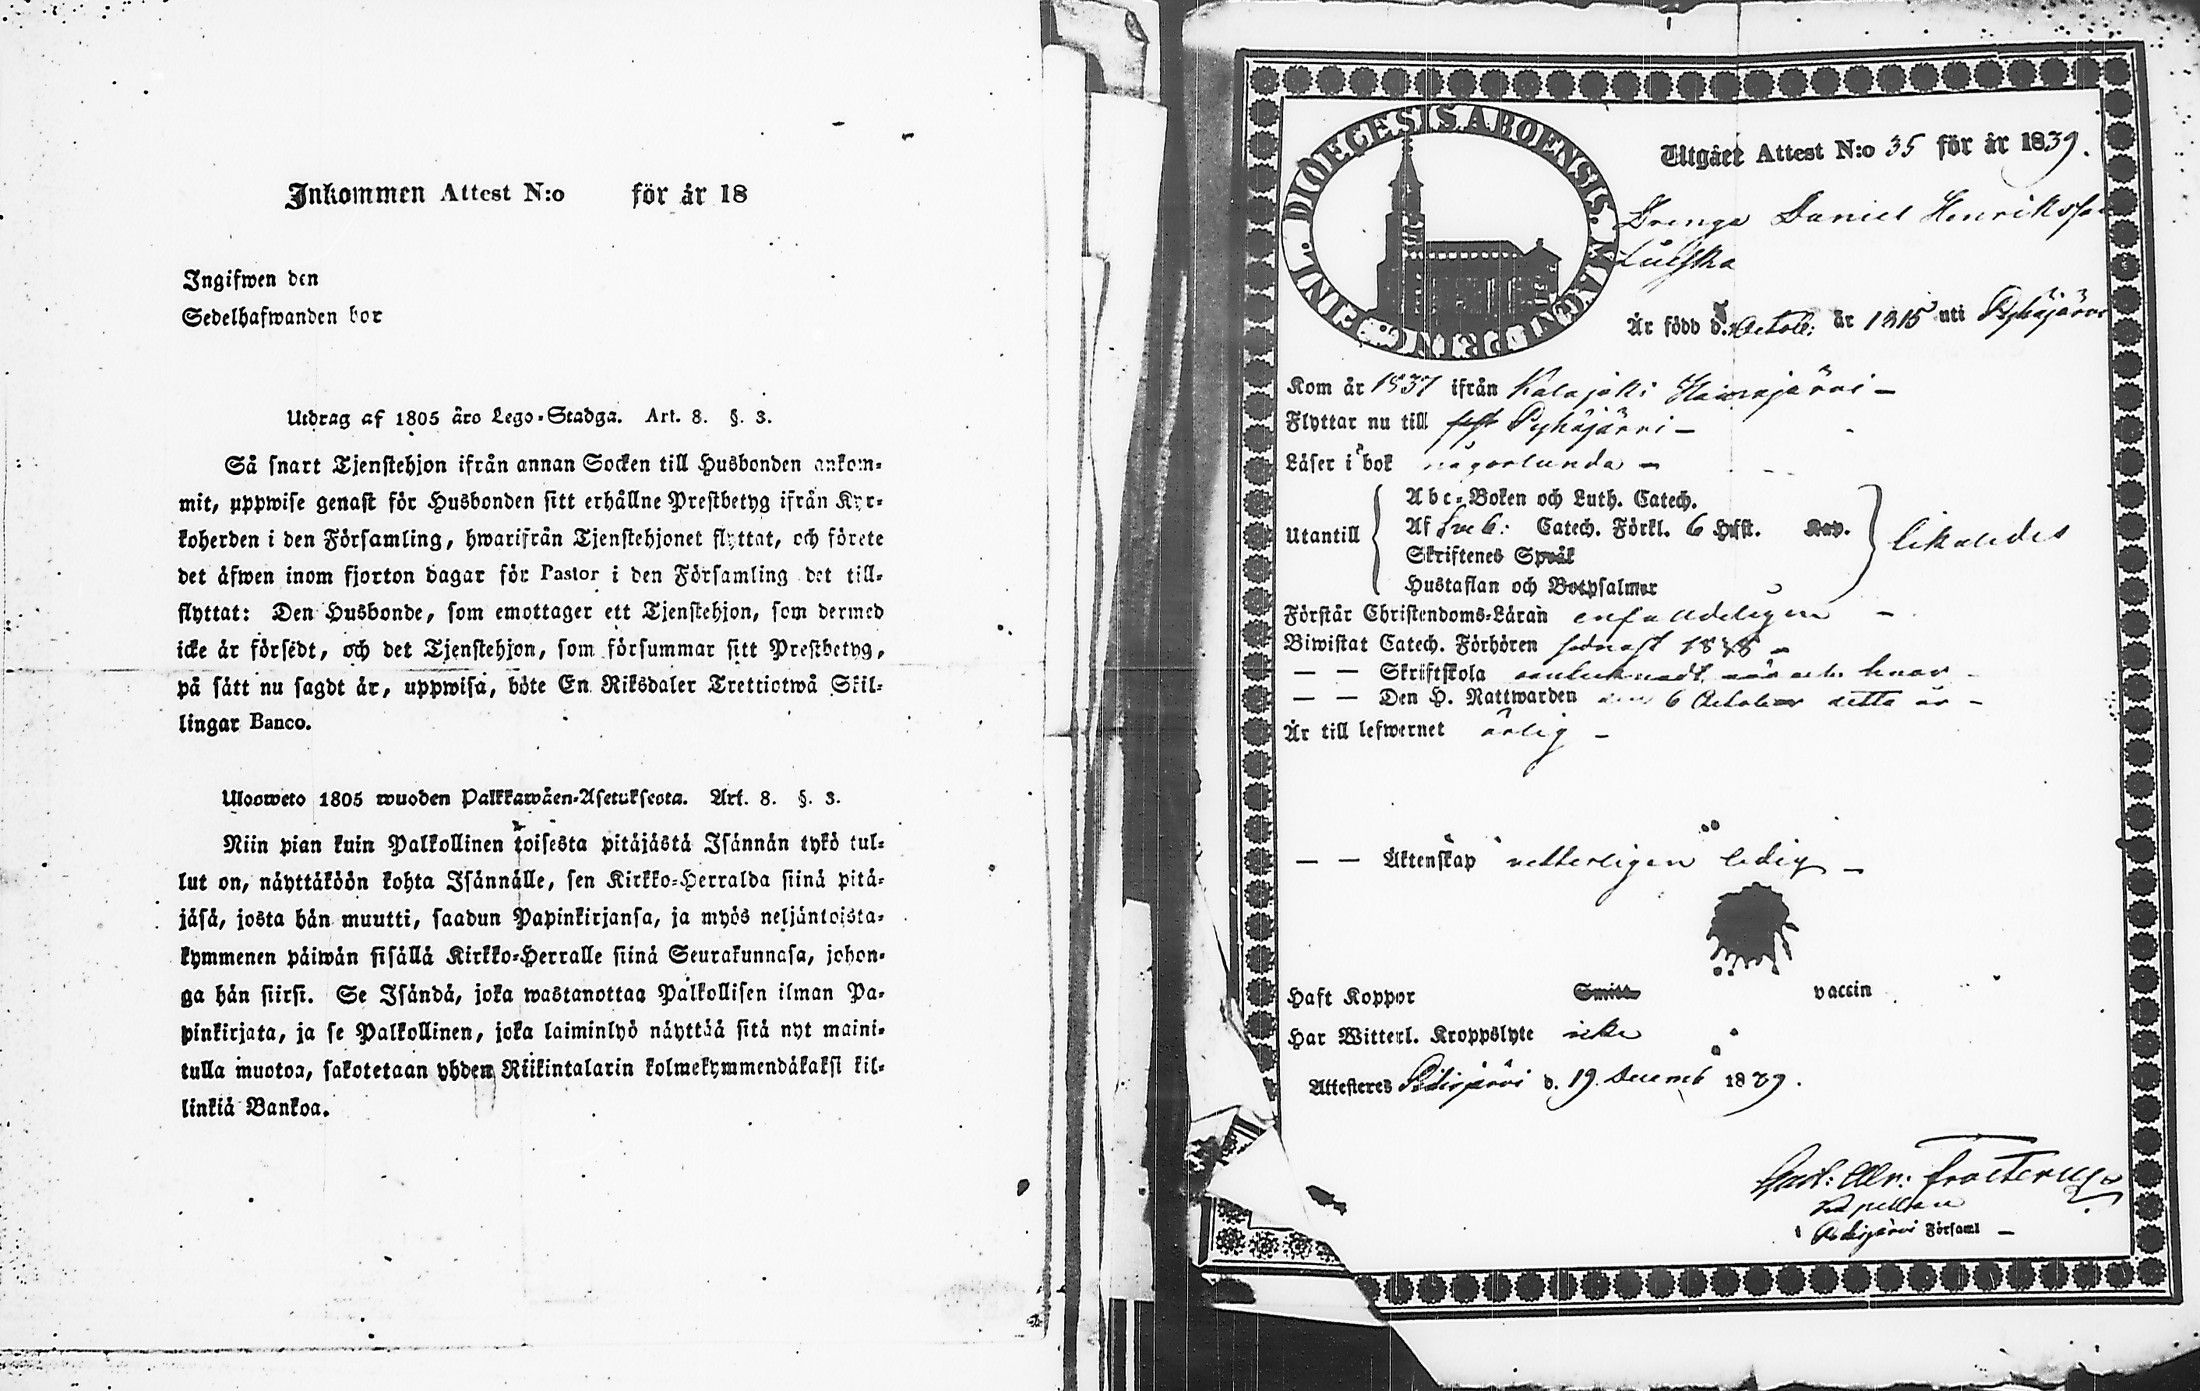 Inkommen Attest N:o för år 18
Ingifwen den
Sedelhafwanden bor
Utdrag af 1805 års Lego-Stadga. Art. 8. §. 3.
Så snart Tjenstehjon ifrån annan Socken till Husbonden ankom-
mit, uppwise genast för Husbonden sitt erhållne Prestbetyg ifrån Kyr-
koherden i den Församling, hwarifrån Tjenstehjonet flyttat, och förete
det äfwen inom fjorton dagar för Pastor i den Församling det till-
flyttat: Den Husbonde, som emottager ett Tjenstehjon, som dermed
icke är försedt, och det Tjenstehjon, som försummar sitt Prestbetyg,
på sätt nu sagdt är, uppwisa, böte En Riksdaler Trettiotwå Skil-
lingar Banco.
Ulosweto 1805 wuoden Palkkawäen-Asetuksesta. Art. 8. §. 3.
Niin pian kuin Palkollinen toisesta pitäjästä Isännän tykö tul-
lut on, näyttäköön kohta Isännälle, sen Kirkko-Herralda siinä pitä-
jäsä, josta hän muutti, saadun Papinkirjansa, ja myös neljäntoista-
kymmenen päiwän sisällä Kirkko-Herralle siinä Seurakunnasa, johon-
ga hän siirsi. Se Isändä, joka wastanottaa Palkollisen ilman Pa-
pinkirjata, ja se Palkollinen, joka laiminlyö näyttää sitä nyt maini-
tulla muotoa, sakotetaan yhden Riikintalarin kolmekymmendäkaksi kil-
linkiä Bankoa.
DIOECESIS ABOENSIS. MAGNI PRINC. FINL.
Utgået Attest N:o 35 för år 1839.
Drenge Daniel Henriksson
Är född d. Octob: år 1815 uti Pyhäjärvi
Kom år 1837 ifrån Kalajoki Haapajärvi -
Flyttar nu till Pyhäjärvi -
Läser i bok någorlunda -
Abc-Boken och Luth. Catech.
Utantill Af Sveb: Catech. Förkl. 6 Hfst. Kap. likaledes
Skriftenes Språk
Hustaflan och Botpsalmer
Förstår Christendoms-Läran enfaldeligen -
Biwistat Catech. Förhören sednast 1838 -
— — Skriftskola
— — Den H. Nattwarden den 6 October detta år -
Är till lefwernet ärlig -
— — Äktenskap vetterligen ledig -
Haft Koppor Smitt. vaccin
Har Witterl. Kroppslyte icke
Attesteres Pidisjärvi d. 19. Decemb 1839.
Frosterus
Kapellan
i Pidisjärvi Församl -